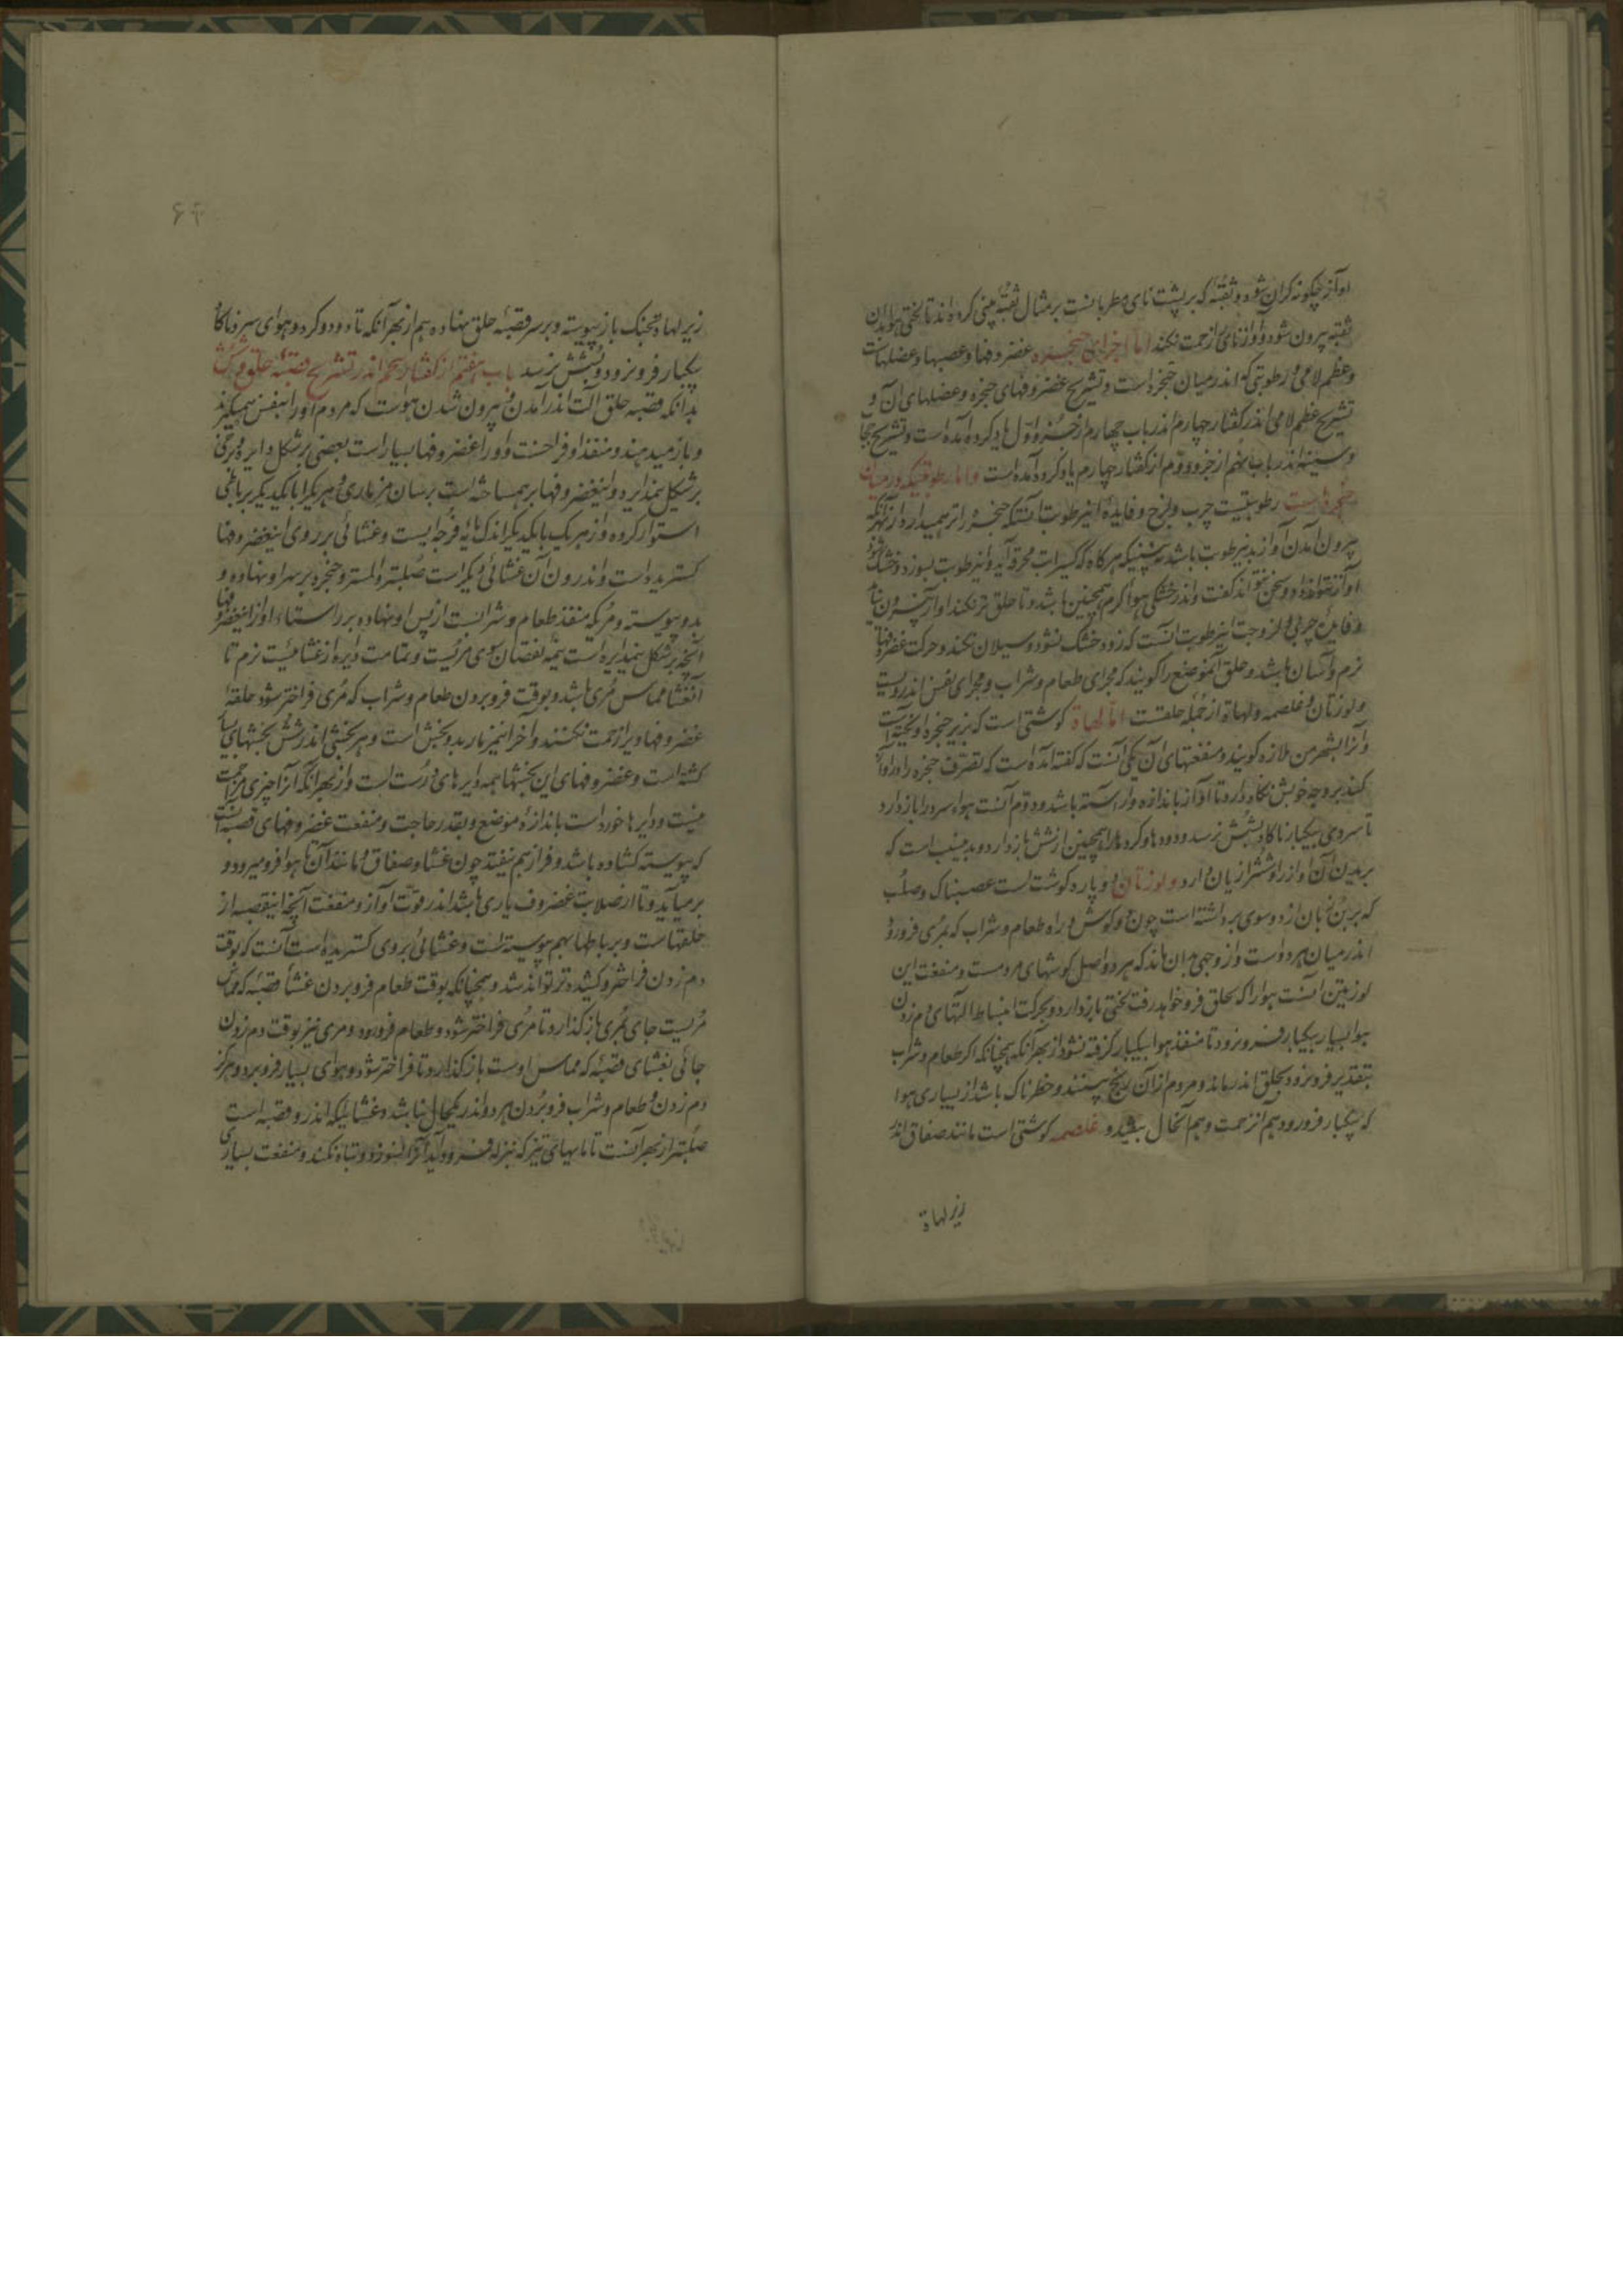 آواز چگونه گران شود و ثقبۀ که بر پشت نای مطربانست بر مثال ثقبۀ بینی کرده اند تا لختی هوا بدان
ثقبه بیرون شود و آواز نای زحمت نکند اما اجزای حنجره غضروفها و عصبها و عضلهاست
و عظم لامی و رطوبتی که اندر میان حنجره است و تشریح غضروفهای حنجره و عضلهای آن و
تشریح عظم لامی اندر کفتار چهارم اندر باب چهارم از جزو اول یاد کرده آمده است و تشریح حجاب
و سینه اندر باب نهم از جزو دوم از کفتار چهارم یاد کرده آمده است و اما رطوبتیکه در میان
حنجره است رطوبتیست چرب و لزج و فایده این رطوبت آنستکه حنجره را تر همیدارد از بهر آنکه
بیرون آمدن آواز بدین رطوبت باشد نبینیکه هرکاه که کسیرا تب محرقه آید و این رطوبت بسوزد و خشک شود
آواز نتواند داد و سخن نتواند کفت و اندر خشکی هوا کرم همچنین باشد و تا حلق تر نکند آواز بیرون نیاید
و فایدۀ چربی و لزوجت این رطوبت آنست که زود خشک نشود و سیلان نکند و حرکت غضروفها
نرم و آسان باشد و حلق آنموضع را کویند که مجرای طعام و شراب و مجرای نفس اندرویست
و لوزتان و غلصمه و لهاة از جمله حلقست اما لهاة کوشتی است که بزیر حنجره آویخته است
و آنرا بشهر من ملازه کویند و منفعتهای آن یکی آنست که کفته آمده است که تصرف حنجره را در آواز
کند بر وجه خویش نکاه دارد تا آواز باندازه و آراسته باشد و دوم آنست هواء سرد را بازدارد
تا سردی بیکبار ناکاه بشش نرسد و دودها و کردها را همچنین از شش باز دارد و بدین سبب است که
بریدن آن آواز را و شش را زیان دارد و لوزتان دو پاره کوشت است عصبناک و صلب
که بر بن زبان از دو سوی برداشته است چون دو کوش و راه طعام و شراب که بمری فرورود
اندر میان هر دو است و از وجهی بدان ماند که هر دو اصل کوشهای مردمست و منفعت این
لوزتین آنست هوا را که بحلق فرو خواهد رفت لختی باز دارد و بحرکت انبساط آلتهای دم زدن
هوا بسیار بیکبار فرو نرود تا منفذ هوا بیکبار کرفته نشود از بهر آنکه همچنانکه اکر طعام و شراب
بتقدیر فرو نرود بحلق اندر ماند و مردم از آن رنج بینند و خطرناک باشد از بسیاری هوا
که بیکبار فرورود هم از زحمت و هم آنحال بیفتد و غلصمه کوشتی است مانند صفاق اندر
زیر لهاة
۶۴
زیر لهاة بحنک باز پیوسته و بر سر قصبۀ حلق نهاده هم از بهر آنکه تا دود و کرد و هوای سرد ناکاه
بیکبار فرو نرود و بشش نرسد باب هفتم از کفتار پنجم اندر تشریح قصبۀ حلق و شش
بدانکه قصبه حلق آلت اندر آمدن و بیرون شدن هواست که مردم او را بنفس همیکیرند
و باز میدهند و منفذ او فراخست و او را غضروفها بسیار است بعضی بر شکل دایره و برخی
بر شکل نیمدایره و این غضروفها بر هم ساخته است برسان مزماری و هر یکرا با یکدیکر برباطی
استوار کرده و از هر یک با یکدیکر اندک مایه فرجه ایست و غشائی بر روی این غضروفها
کسترید است و اندرون آن غشائی دیکر است صلبتر و املستر و حنجره بر سر او نهاده و
بدو پیوسته و مری که منفذ طعام و شرابست از پس او نهاده بر راستاء او از این غضروفها
آنچه بر شکل نیمدایره است نیمه نقصان سوی مریست و تمامت دایره از غشائیست نرم تا
آنغشا مماس مری باشد و بوقت فروبردن طعام و شراب که مری فراختر شود حلقۀ
غضروفها ویرا زحمت نکنند و آخر این مزمار بدو بخش است و هر بخشی اندر شش بخشهای بسیار
کشته است و غضروفهای این بخشها همه دایرهای درست است و از بهر آنکه آنرا چیزی مزاحمت
نیست و دایرها خورد است باندازۀ موضع و بقدر حاجت و منفعت غضروفهای قصبه آنست
که پیوسته کشاده باشد و فراز هم نیفتد چون غشا و صفاق و مانند آن تا هوا فرو میرود و
برمیآید و تا از صلابت غضروف یاری باشد اندر قوت آواز و منفعت آنچه اینقصبه از
حلقهاست و برباطها بهم پیوسته است و غشائی بر وی کستریده است آنست که بوقت
دم زدن فراختر و کشیده تر تواند شد و همچنانکه بوقت طعام فروبردن غشأ قصبه که مماس
مریست جای مری باز کذارد تا مری فراختر شود و طعام فرورود و مری نیز بوقت دم زدن
جائی بغشای قصبه که مماس اوست باز کذارد تا فراختر شود و هوای بسیار فروبرد و هرکز
دم زدن و طعام و شراب فروبردن هر دو اندر یکحال نباشد و غشائیکه اندرون قصبه است
صلبتر از بهر آنست تا مادهای تیز که نزله فرود آید آنرا نسوزد و تباه نکند و منفعت بسیاری